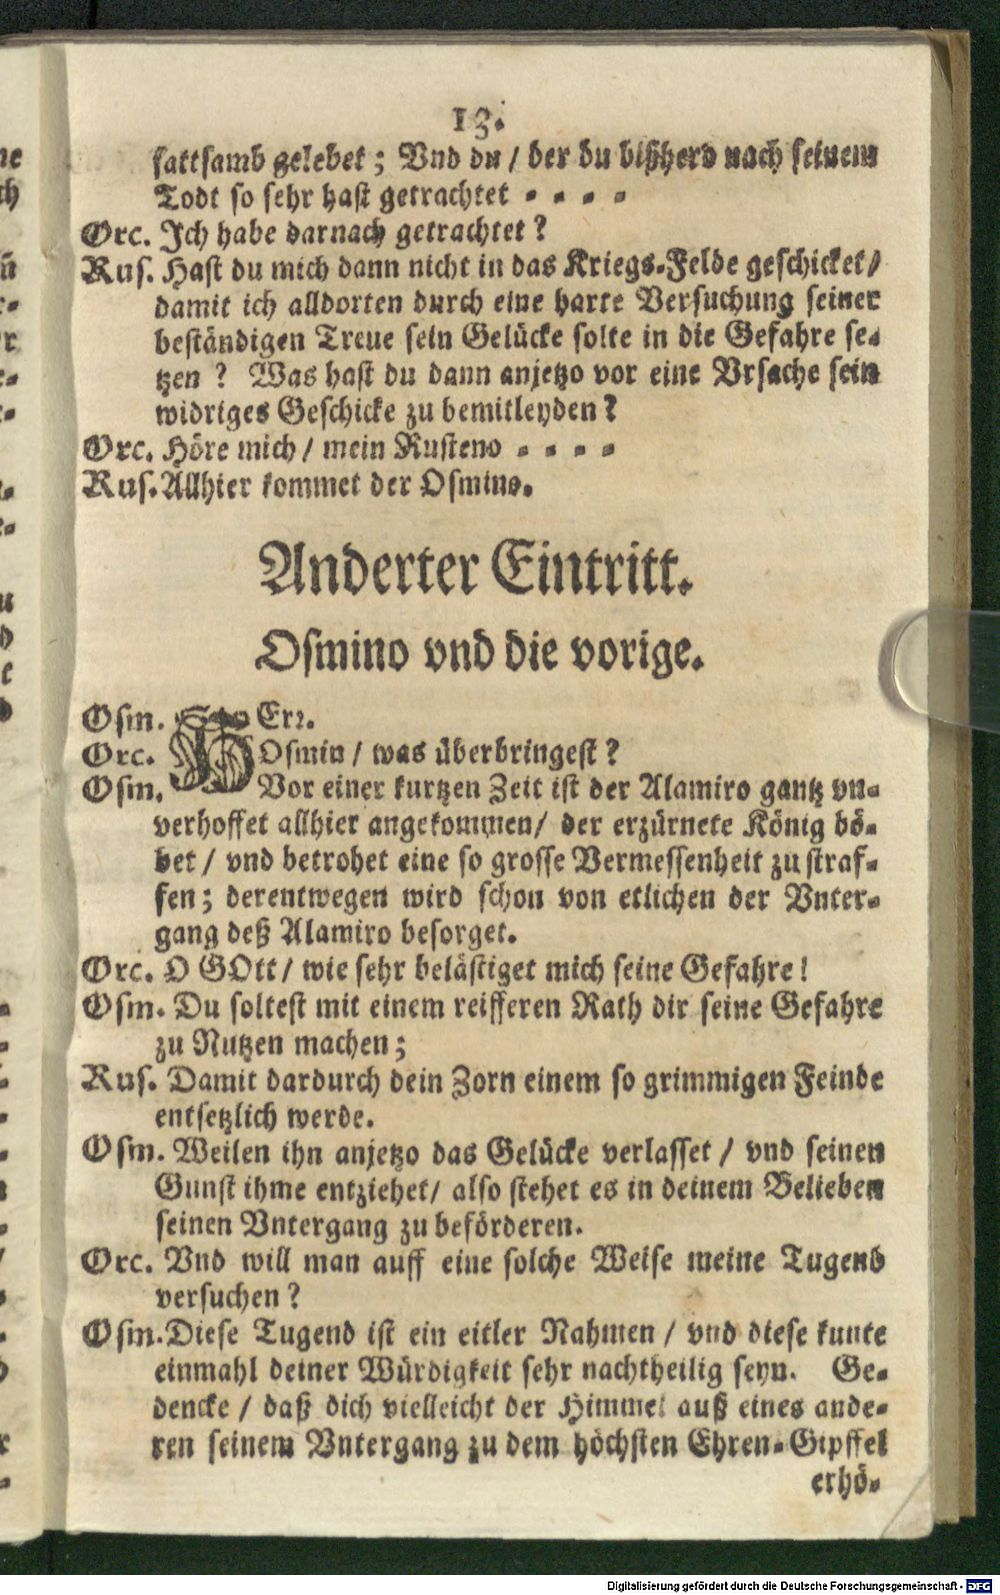 13.
sattsamb gelebet; Vnd du / der du bißhero nach seinem
Todt so sehr hast getrachtet - - - -
Orc. Ich habe darnach getrachtet?
Rus. Hast du mich dann nicht in das Kriegs-Felde geschicket /
damit ich alldorten durch eine harte Versuchung seiner
beständigen Treue sein Gelücke solte in die Gefahre se-
tzen? Was hast du dann anjetzo vor eine Vrsache sein
widriges Geschicke zu bemitleyden?
Orc. Höre mich / mein Rusteno - - - -
Rus. Allhier kommet der Osmino.
Anderter Eintritt.
Osmino vnd die vorige.
Osm. HErr.
Orc. Osmin / was überbringest?
Osm. Vor einer kurtzen Zeit ist der Alamiro gantz vn-
verhoffet allhier angekommen / der erzürnete König bö-
bet / vnd betrohet eine so grosse Vermessenheit zu straf-
fen; derentwegen wird schon von etlichen der Vnter-
gang deß Alamiro besorget.
Orc. O GOtt / wie sehr belästiget mich seine Gefahre!
Osm. Du soltest mit einem reifferen Rath dir seine Gefahre
zu Nutzen machen;
Rus. Damit dardurch dein Zorn einem so grimmigen Feinde
entsetzlich werde.
Osm. Weilen ihn anjetzo das Gelücke verlasset / vnd seinen
Gunst ihme entziehet / also stehet es in deinem Belieben
seinen Vntergang zu beförderen.
Orc. Vnd will man auff eine solche Weise meine Tugend
versuchen?
Osm. Diese Tugend ist ein eitler Nahmen / vnd diese kunte
einmahl deiner Würdigkeit sehr nachtheilig seyn. Ge-
dencke / daß dich vielleicht der Himmel auß eines ande-
ren seinem Vntergang zu dem höchsten Ehren-Gipffel
erhö-
Digitalisierung gefördert durch die Deutsche Forschungsgemeinschaft - DFG